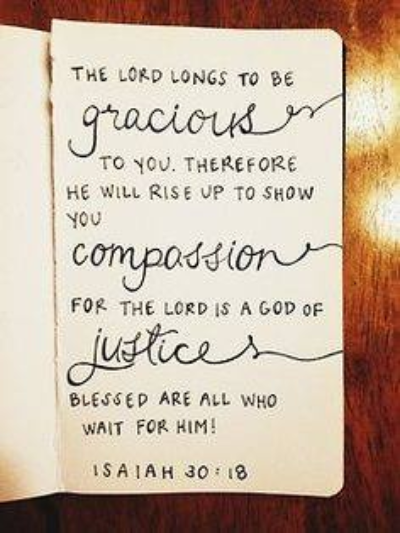 THE LORD LONGS TO BE
gracious
TO YOU. THEREFORE
HE WILL RISE UP TO SHOW
YOU
compassion
FOR THE LORD IS A GOD OF
justice
BLESSED ARE ALL WHO
WAIT FOR HIM!
ISAIAH 30:18